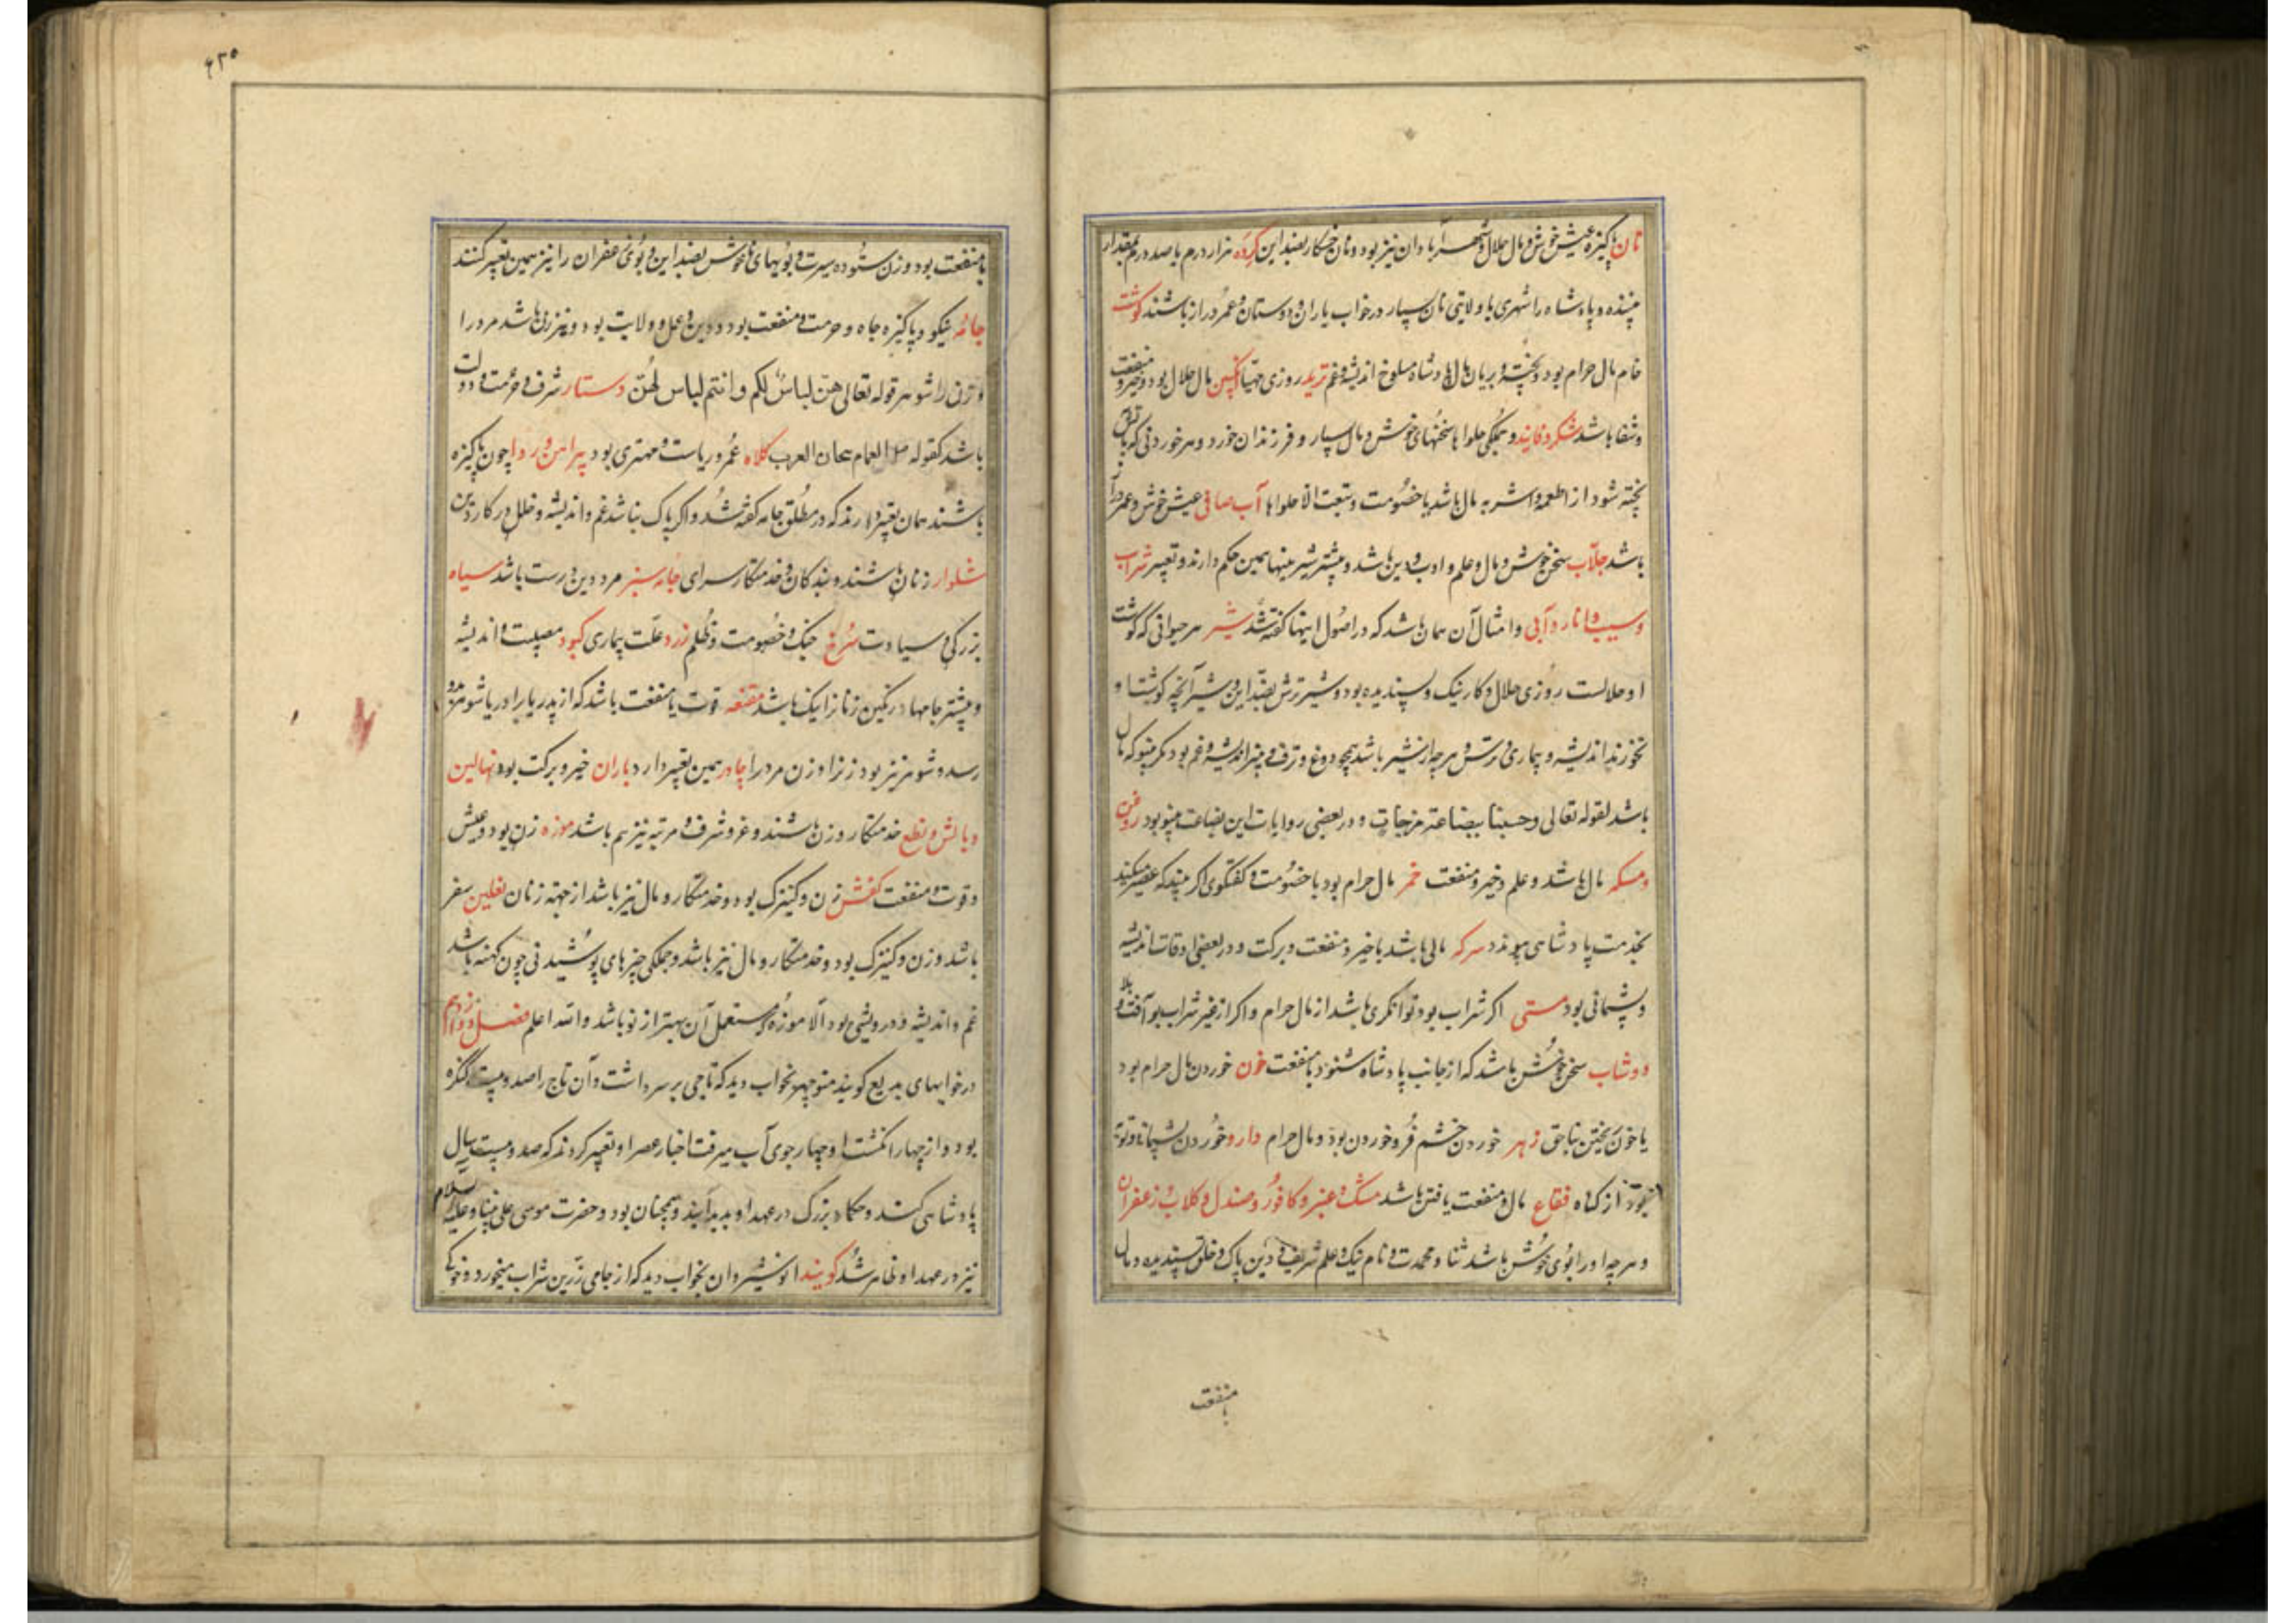 نان پاکیزه عیش خوش و مال حلال و شهر آبادان نیز بود و نان خشکار بضد این کرده هزار درم یا صد درم بمقدار
بیننده و پادشاه را شهری یا ولایتی نان بسیار در خواب یاران و دوستان و عمر دراز باشند کوشت
خام مال حرام بود و پخته و بریان مال پادشاه مسلوخ اندیشه و غم ترید روزی مهیا انکبین مال حلال بود و خیر و منفعت
و شفا باشد شکر و فانید و همکی حلوا ها سخنهای خوش و مال بسیار و فرزندان خورد و هر خوردنی که باتش
پخته شود از اطعمه و اشربه مال باشد با خصومت و تبعت الا حلواها آب صافی عیش خوش و عمر دراز
باشد جلاب سخن خوش و مال و علم و ادب و دین باشد و بیشتر شیرینیها همین حکم دارند و تعبیر شراب
و سیب و انار و آبی و امثال آن همان باشد که در اصول اینها کفته شد شیر هر حیوانی که کوشت
او حلالست روزی حلال و کار نیک و پسندیده بود و شیر ترش بضد این و شیر آنچه کوشت او
نخورند اندیشه و بیماری و ترس و هر چه از شیر باشد همچو دوغ و ترف و پنیر اندیشه و غم بود مکر پینو که مال
باشد لقوله تعالی وجئنا ببضاعة مزجات و در بعضی روایات این بضاعت پینو بود روغن
و مسکه مال باشد و علم و خیر و منفعت خمر مال حرام بود با خصومت و کفتکوی اکر بیند که عصیر میکند
بخدمت پادشاهی پیوندد سرکه مالی باشد با خیر و منفعت و برکت و در بعضی اوقات اندیشه
و پشیمانی بود مستی اکر شراب بود توانکری باشد از مال حرام و اکر از غیر شراب بود آفت و بلا
دوشاب سخن خوش باشد که از جانب پادشاه شنود با منفعت خون خوردن مال حرام بود
یا خون ریختن بناحق زهر خوردن خشم فرو خوردن بود و مال حرام دارو خوردن پشیمانی و توبه
از کناه فقاع مال و منفعت یافتن باشد مشک و عنبر و کافور و صندل و کلاب و زعفران
و هر چه او را بوی خوش باشد ثنا و محمدت و نام نیک و علم شریف و دین پاک و خلق پسندیده و مال
با منفعت
۶۳۵
با منفعت بود و زن ستوده سیرت و بویهای ناخوش بضد این و بوی زعفران را نیز همین تعبیر کنند
جامه نیکو و پاکیزه جاه و حرمت و منفعت بود و دین و عمل و ولایت بود و نیز زن باشد مرد را
و زن را شوهر قوله تعالی هن لباس لکم و انتم لباس لهن دستار شرف و حرمت و دولت
باشد کقوله العمام تیجان العرب کلاه عمر و ریاست و مهتری بود پیراهن و ردا چون پاکیزه
باشند همان تعبیر دارند که در مطلق جامه کفته شد و اکر پاک نباشد غم و اندیشه و خلل در کار دین
شلوار زنان باشند و بندکان و خدمتکار سرای جامه سبز مرد دین درست باشد سیاه
بزرکی و سیادت سرخ جنک و خصومت و ظلم زرد علت بیماری کبود مصیبت و اندیشه
و بیشتر جامها رنکین زنانرا نیک باشد مقنعه قوت با منفعت باشد که از پدر یا برادر یا شوهر بدو
رسد و شوهر نیز بود زنرا و زن مرد را چادر همین تعبیر دارد باران خیر و برکت بود نهالین
و بالش و نطع خدمتکار و زن باشند و عز و شرف و مرتبه نیز هم باشد موزه زن بود و عیش
و قوت و منفعت کفش زن و کنیزک بود و خدمتکار و مال نیز باشد از جهة زنان نعلین سفر
باشد و زن و کنیزک بود و خدمتکار و مال نیز باشد و جملکی چیزهای پوشیدنی چون کهنه باشد
غم و اندیشه و درویشی بود الا موزه که مستعمل آن بهتر از نو باشد والله اعلم فصل دوازدهم
در خوابهای بدیع کویند منوچهر بخواب دید که تاجی بر سر داشت و آن تاج را صد و بیست کنکره
بود و از چهار انکشت او چهار جوی آب میرفت اخبار عصر او تعبیر کردند که صد و بیست سال
پادشاهی کند و حکماء بزرک در عهد او پدید آیند و همچنان بود و حضرت موسی علی نبینا و علیه السلام
نیز در عهد او ظاهر شد کویند انوشیروان بخواب دید که از جامی زرین شراب میخورد و خوکی